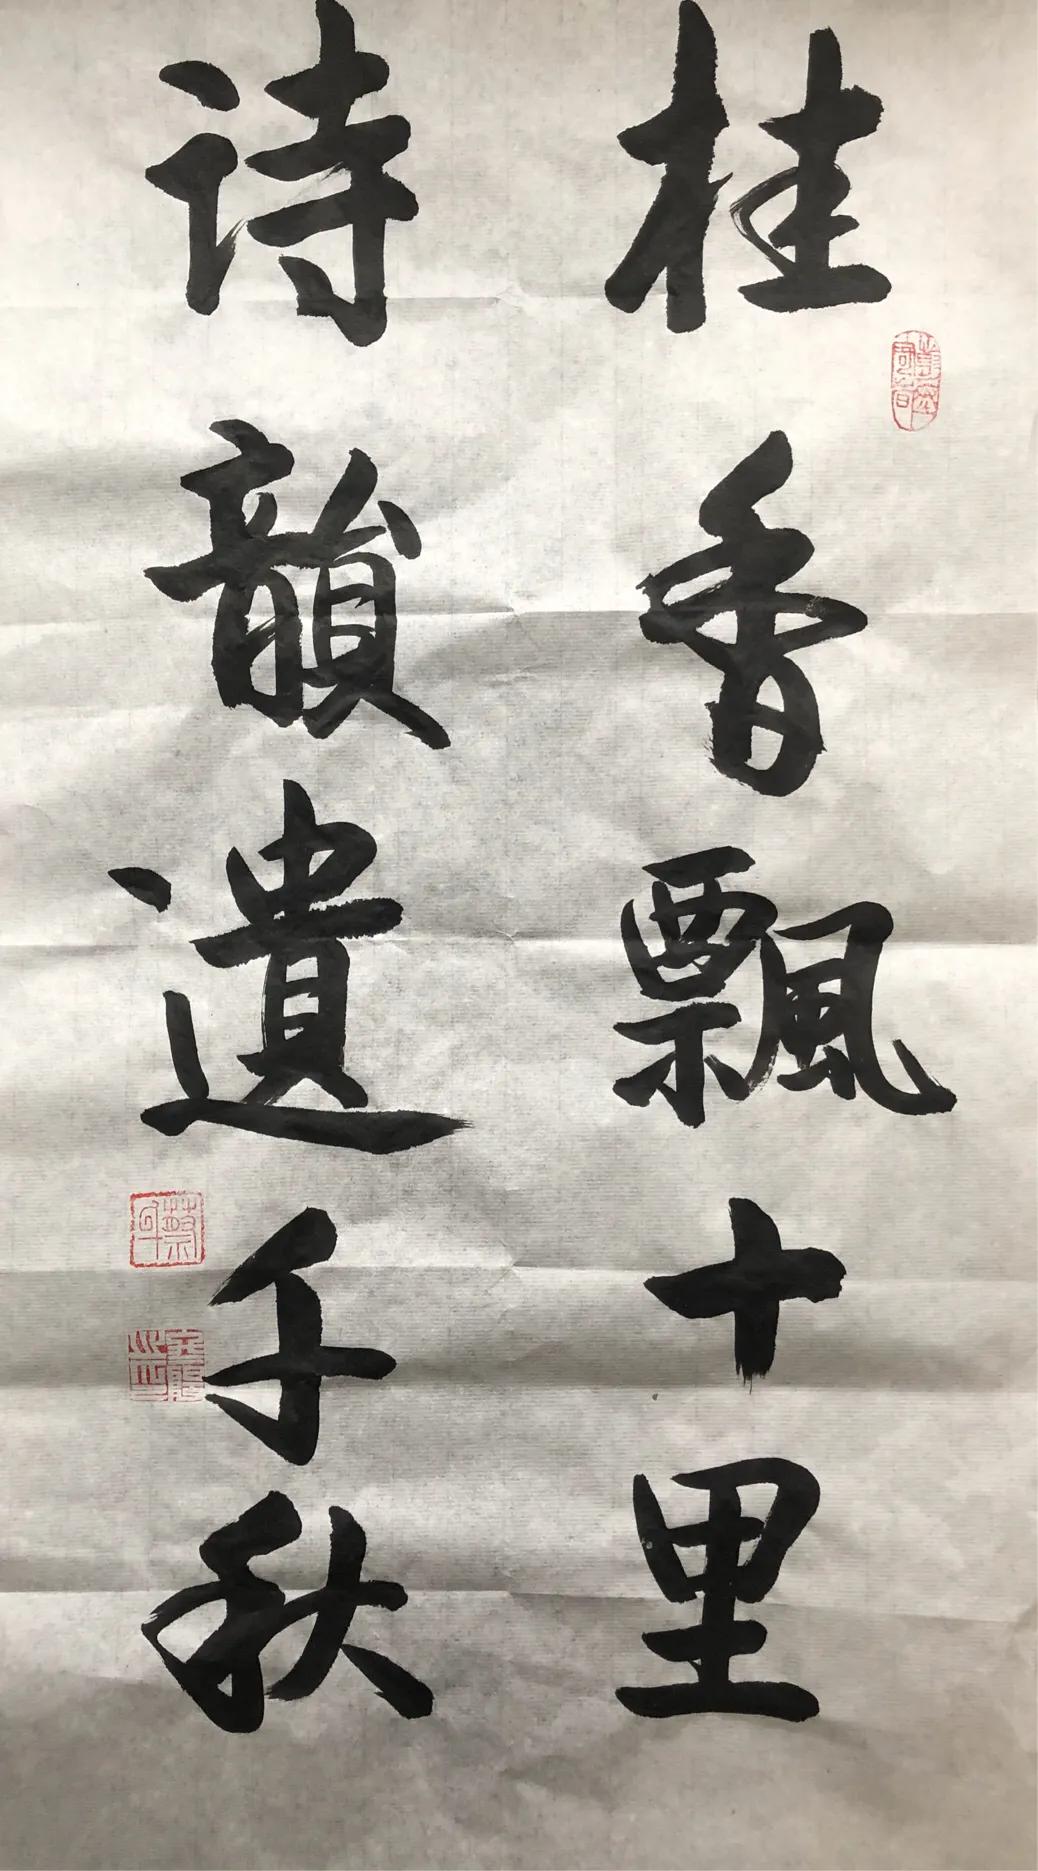 桂香飄十里
诗韻遺千秋